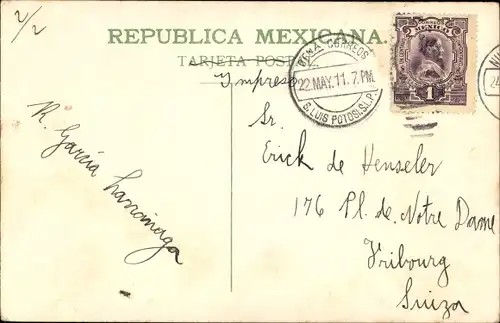 2/2
REPUBLICA MEXICANA.
TARJETA POSTAL
Impreso
22 MAY. 11. 7 PM
S. LUIS POTOSI, S.L.P.
CORREOS
MEXICO
1
24
Sr.
Erick de Henseler
176 Pl. de Notre Dame
Fribourg
Suiza
R. García Larrañaga